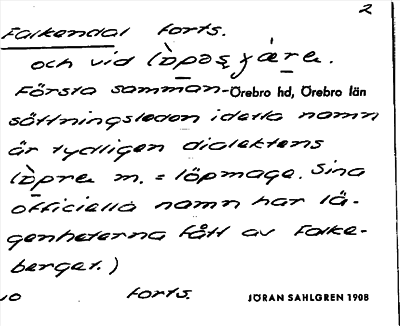 2
Falkendal forts.
och vid lòpəʂ jære.
Första samman-
Örebro hd, Örebro län
sättningsleden i detta namn
är tydligen dialektens
lòpre m. = löpmage. Sina
officiella namn har lä-
genheterna fått av Falke-
berget.)
forts.
JÖRAN SAHLGREN 1908